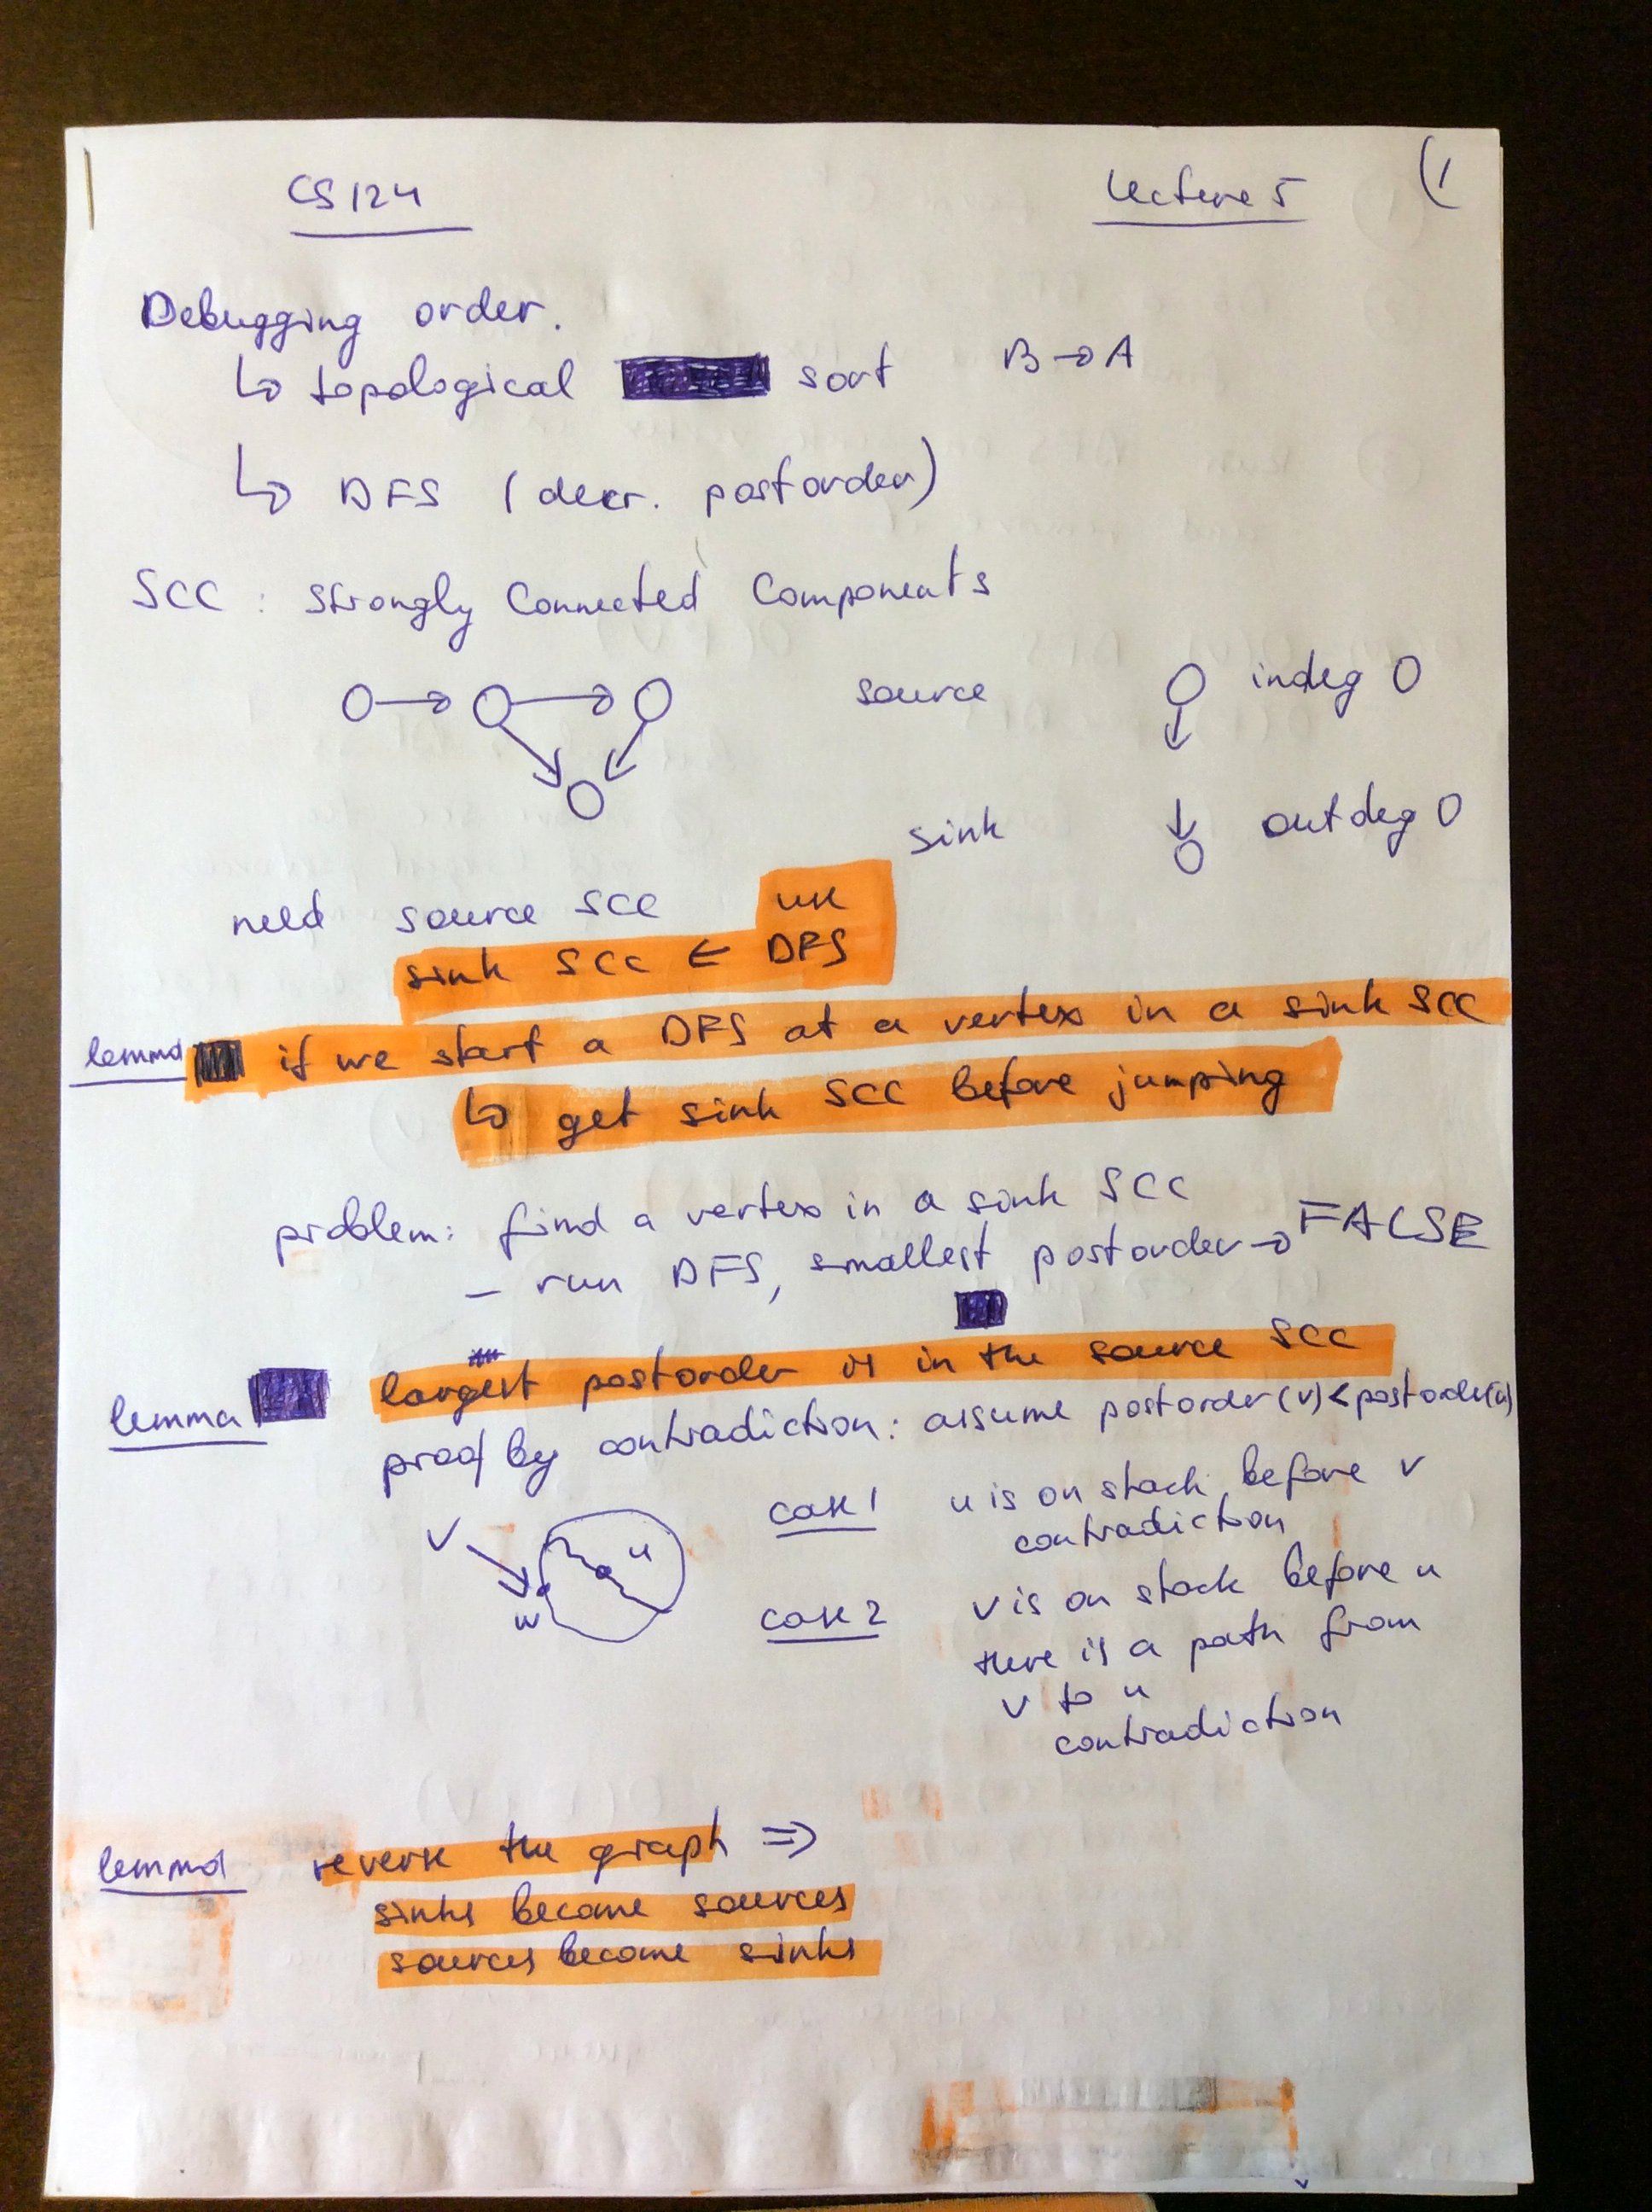 CS 124
Lecture 5
(1
Debugging order.
↳ topological sort B → A
↳ DFS (decr. postorder)
SCC : Strongly Connected Components
source indeg 0
sink outdeg 0
need source SCC use
sink SCC ← DFS
lemma if we start a DFS at a vertex in a sink SCC
↳ get sink SCC before jumping
problem: find a vertex in a sink SCC
- run DFS, smallest postorder → FALSE
lemma largest postorder is in the source SCC
proof by contradiction: assume postorder(v) < postorder(u)
case 1 u is on stack before v
contradiction
v
u
w
case 2 v is on stack before u
there is a path from
v to u
contradiction
lemma reverse the graph ⇒
sinks become sources
sources become sinks